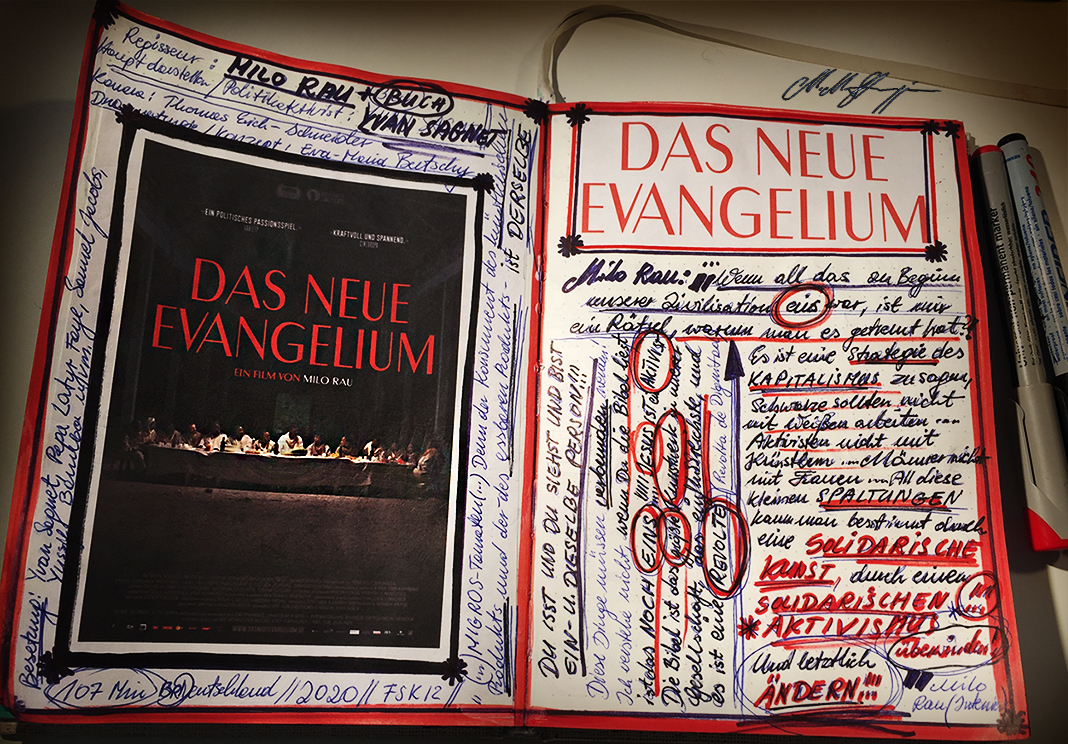 Regisseur:
MILO RAU + BUCH
Hauptdarsteller / Politikaktivist:
YVAN SAGNET
Kamera: Thomas Eirich-Schneider
Dramaturgie / Konzept: Eva-Maria Bertschy
Besetzung: Yvan Sagnet, Papa Latyr Faye, Samuel Jacobs,
Yussif Bamba
„EIN POLITISCHES PASSIONSSPIEL.“
„KRAFTVOLL UND SPANNEND.“
DAS NEUE
EVANGELIUM
EIN FILM VON MILO RAU
107 Min BRDeutschland // 2020 // FSK 12
"" MIGROS-Tomaten (...) Denn der Konsument des künstlerischen
Produkts und der des essbaren Produkts - ist DERSELBE
DAS NEUE
EVANGELIUM
Milo Rau: "" Wenn all das zu Beginn
unserer Zivilisation eins war, ist mir
ein Rätsel, warum man es getrennt hat?!
Es ist eine Strategie des
KAPITALISMUS zu sagen,
Schwarze sollten nicht
mit Weißen arbeiten ...
Aktivisten nicht mit
Künstlern ... Männer nicht
mit Frauen ... All diese
kleinen SPALTUNGEN
kann man bestimmt durch
eine SOLIDARISCHE
KUNST, durch einen
SOLIDARISCHEN
AKTIVISMUS
überwinden!
Und letztlich
ÄNDERN!!!
Milo
Rau /
DU ISST UND DU SIEHST UND BIST
EIN- U. DIESELBE PERSON!!!
Diese Dinge müssen verbunden werden!
Ich verstehe nicht, wenn Du die Bibel liest
ist das NOCH EINS!!! JESUS ist Aktivist
Die Bibel ist das
Gesellschaft, das es und
es ist eine REVOLTE
Rivolta
permanent marker